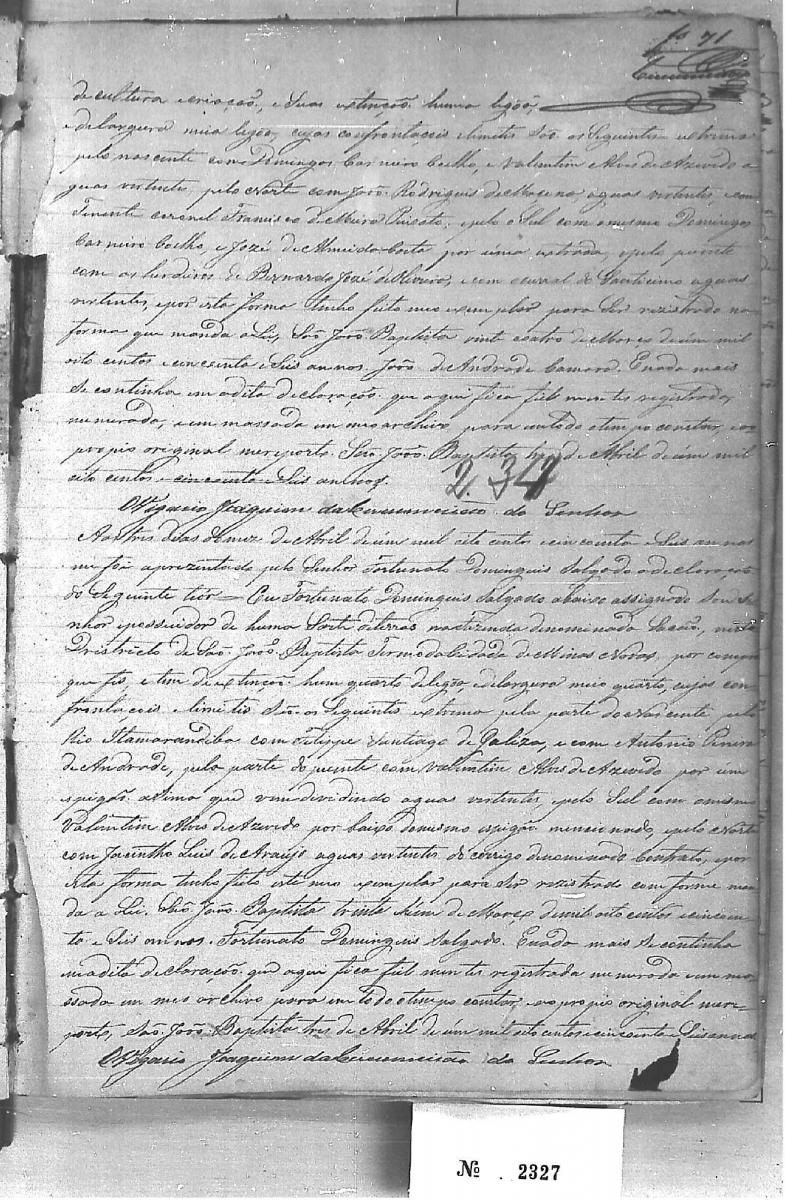 fo 71
de cultura e criação, e Suas extinção huma legoa,
e de largura meia legoa, cujas confrontaçois e limites São os Seguintes extrema
pelo nascente com Domingos Carneiro Coelho, e Valentim Alves de Azevedo a
guas vertentes, pelo Norte com João Rodrigues de aguas vertentes e com
Tenente coronel Francisco de Meira, e pelo Sul com o mesmo Domingos
Carneiro Coelho, e José de Almeida Couto por uma estrada, e pelo puente
com os herdeiros de Bernardo José de Oliveira, e com curral do Santissimo aguas
vertentes, e por esta forma tenho feito meo exemplar para Ser rezistrado na
forma que manda a Lei, São João Baptista vinte coatro de Março de úm mil
oito centos e cincoenta e Seis annos. João de Andrade Camara. Enada mais
Se continha em a dita declaração que aqui fica fiel mentes registrada,
numerada, e em massada em meo archivo, para em todo etempo constar, e ao
propio original mereporto. São João Baptista de Abril de úm mil
oito centos e cincoenta e Seis annos.
2.341
O Vigario Joaquim da Circuncisão do Senhor
Aos tres dias do mez de Abril de úm mil oito centos e cincoenta e Seis annos
me foi aprezentado pelo Senhor Fortunato Dominguis Salgado a declaração
do Seguinte tior = Eu Fortunato Dominguis Salgado abaixo assignado Sou Se
nhor e possuidor de huma Sorte de terras na fazenda denominada, neste
Dristricto de São João Baptista Termo da Cidade de Minas Novas, por compra
que fis, e tem de extinção hum quarto de legoa, e de largura meio quarto, cujas con
frontaçois e limitis São os Seguintes extrema pela parte do Nascente pelo
Rio Itamarandiba com Felippe Santiago de Galiza, e com Antonio Pereira
de Andrade, pela parte do puente com Valentim Alves de Azevedo por úm
espigão asima que vem devidindo aguas vertentes, pelo Sul com o mesmo
Valentim Alves de Azevedo por baixo do mesmo espigão mencionado, e pelo Norte
com Jacintho Luis de Araujo aguas vertentes do corigo denominado Contrato, e por
esta forma tenho feito este meo exemplar para Ser rezistrado com forme man
da a Lei. São João Baptista trinta e úm de Março de mil oito centos e cincoen
ta e Seis annos. Fortunato Dominguis Salgado. Enada mais Se continha
em a dita declaração que aqui fica fiel mentes registrada numerada e em ma
ssada em meo archivo para em todo etempo constar, e ao propio original mere
porto, São João Baptista tres de Abril de úm mil oito centos e cincoenta e Seis annos
O Vigario Joaquim da Circuncisão do Senhor
Nº 2327